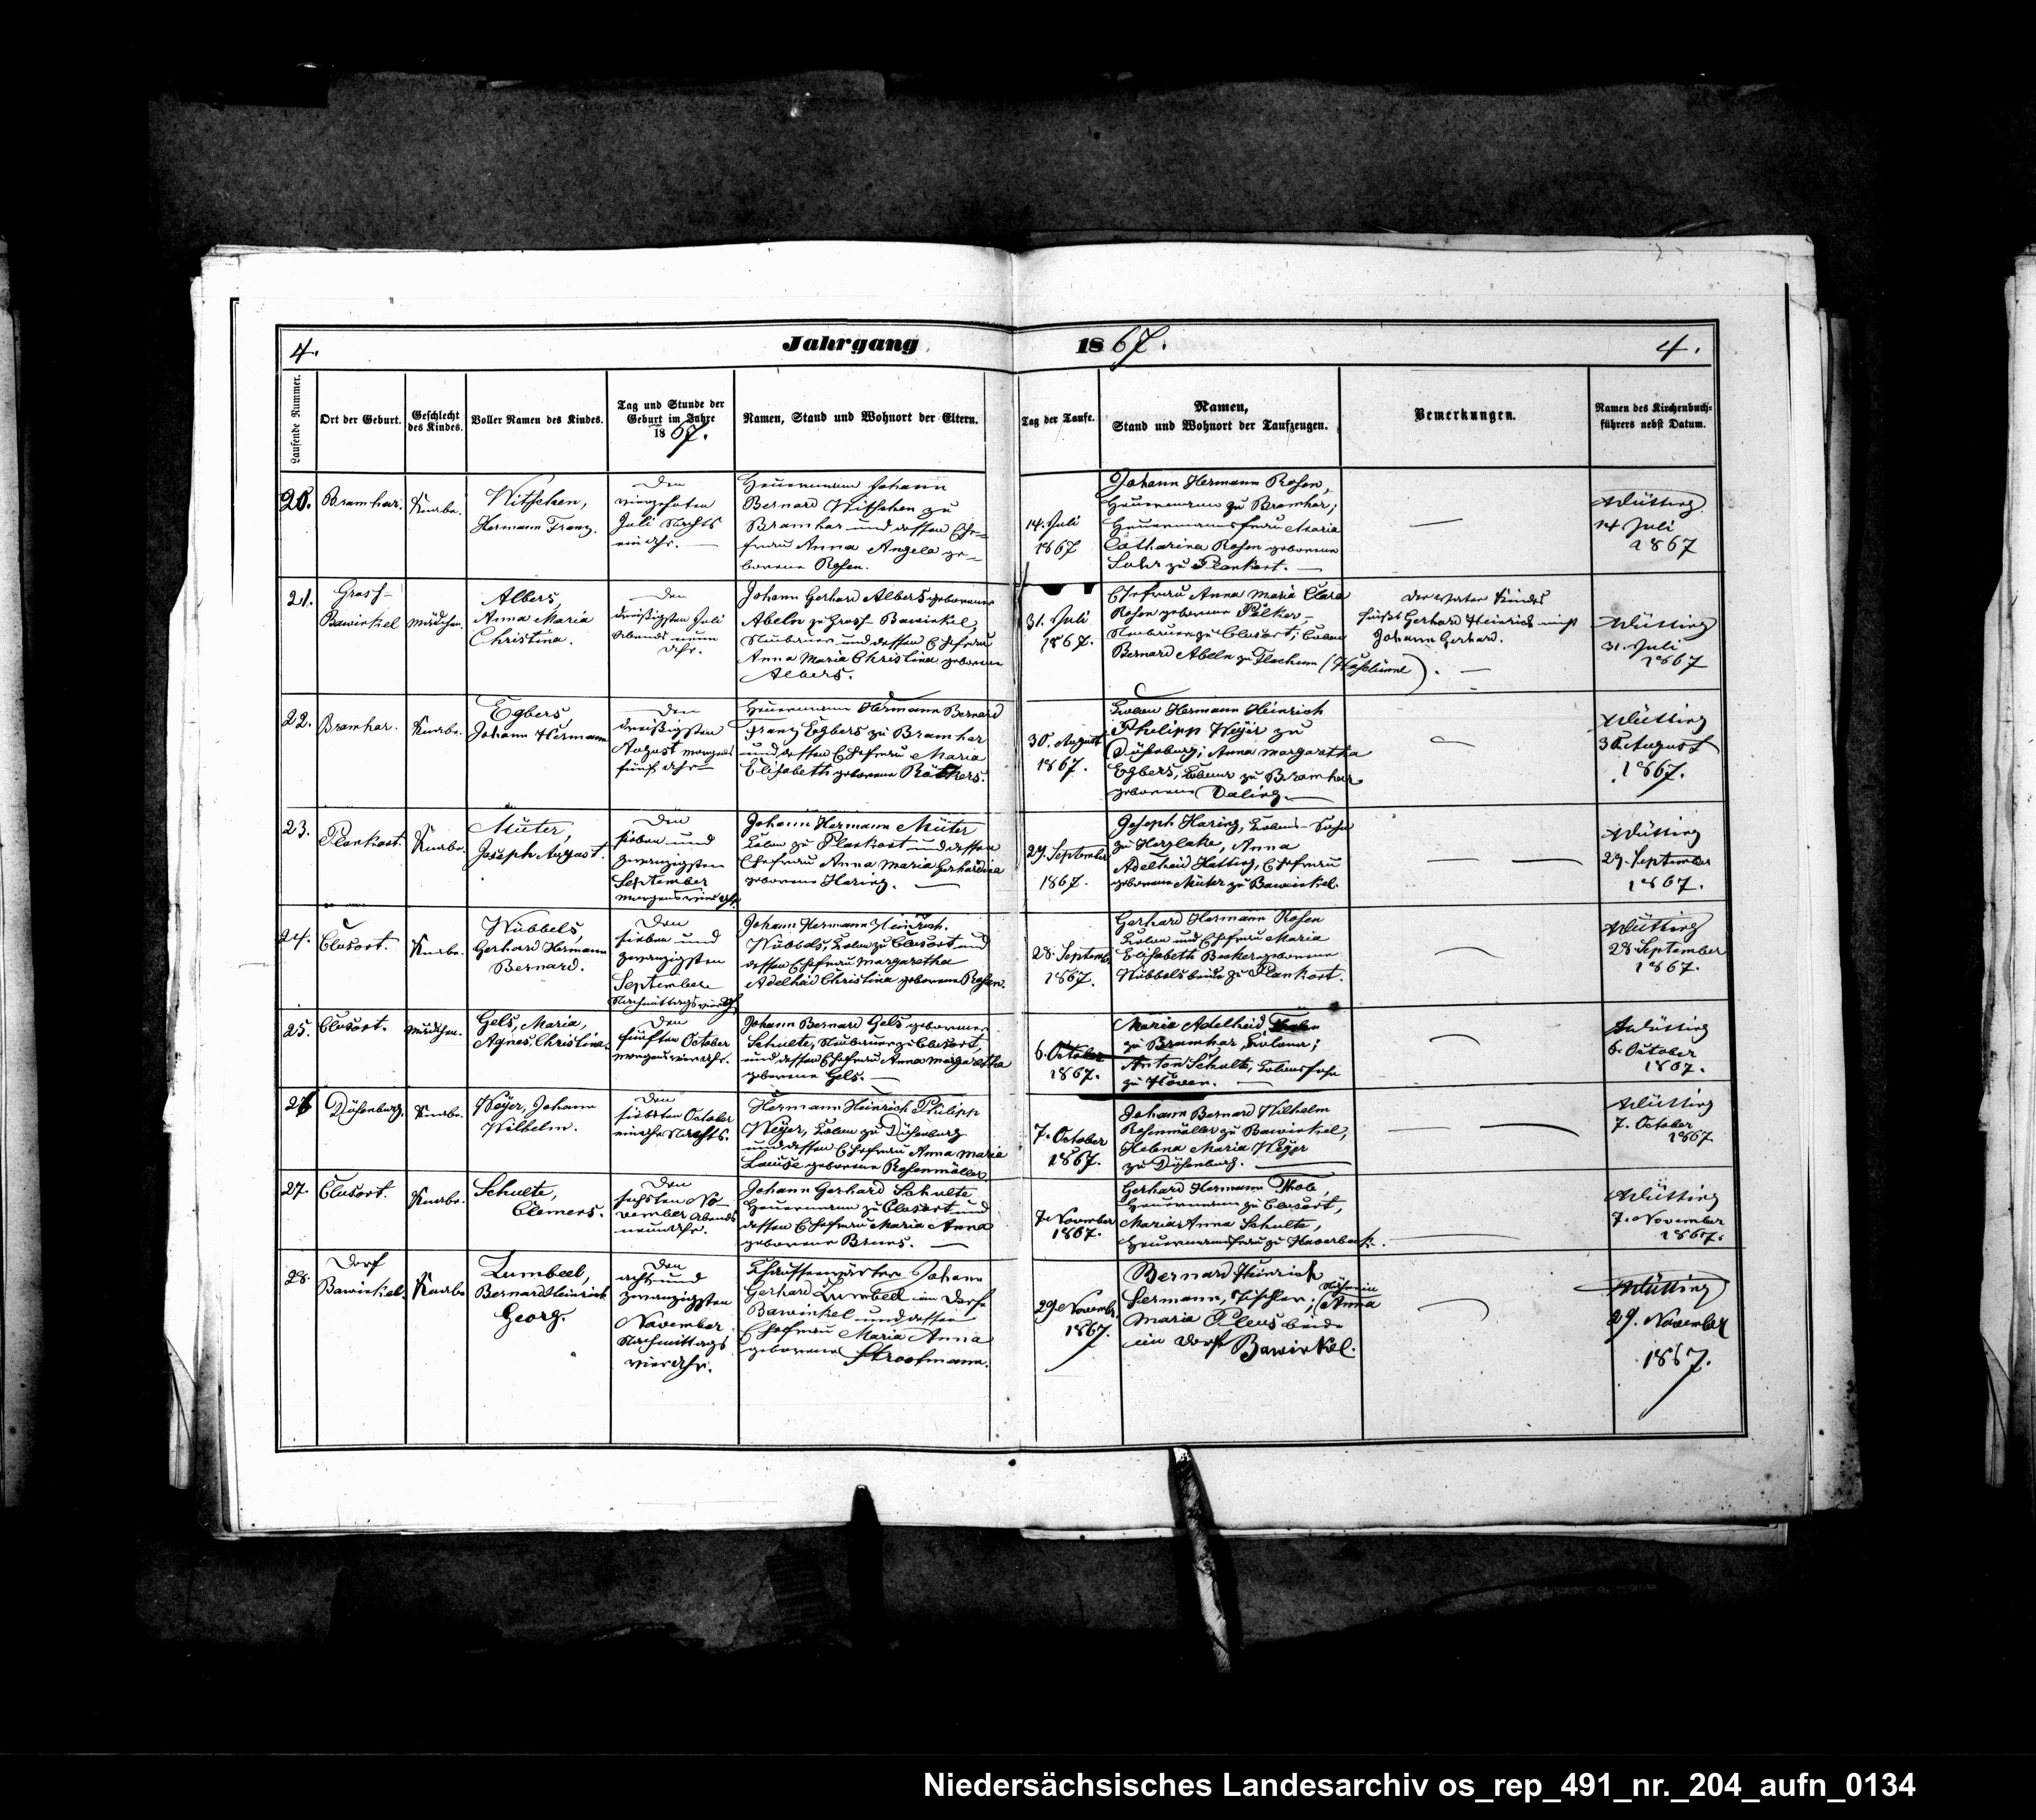 4.
Jahrgang 1867.
4.
Laufende Nummer.
Ort der Geburt.
Geschlecht des Kindes.
Voller Namen des Kindes.
Tag und Stunde der
Geburt im Jahre
1867.
Namen, Stand und Wohnort der Eltern.
Tag der Taufe.
Namen,
Stand und Wohnort der Taufzeugen.
Bemerkungen.
Namen des Kirchenbuch-
führers nebst Datum.
20.
Bramhar.
Knabe.
Witschen,
Hermann Franz.
Den
vierzehnten
Juli Nachts
ein Uhr.
Heuermann Johann
Bernard Witschen zu
Bramhar und dessen Ehe-
frau Anna Angela ge-
borene Rosen.
14. Juli
1867
Johann Hermann Rosen,
Heuermann zu Bramhar;
Heuermannsfrau Maria
Catharina Rosen geborene
zu Plankort.
14 Juli
1867
21.
Gross-
Bawinkel
Mädchen.
Albers,
Anna Maria
Christina.
Den
dreißigsten Juli
Abends neun
Uhr.
Johann Gerhard Albers geborener
Abeln zu Gross Bawinkel,
Neubauer und dessen Ehefrau
Anna Maria Christina geborene
Albers.
31. Juli
1867.
Ehefrau Anna Maria Clara
Rosen geborene Pölker,
Neubauer zu Clusort; Colon
Bernard Abeln zu Flechum (Haselünne).
Der Vater Kindes
heißt Gerhard Heinrich nicht
Johann Gerhard.
31. Juli
1867
22.
Bramhar.
Knabe.
Egbers,
Johann Hermann
Den
dreißigsten
August morgens
fünf Uhr
Heuermann Hermann Bernard
Franz Egbers zu Bramhar
und dessen Ehefrau Maria
Elisabeth geborene
30. August
1867.
Colon Hermann Heinrich
Philipp Weÿer zu
Duisenburg; Anna Margaretha
Egbers, Colona zu Bramhar
geborene Daling.
30. August
1867.
23.
Plankort.
Knabe.
Müter,
Joseph August.
Den
sieben und
zwanzigsten
September
Johann Hermann Müter
Colon zu Plankort und dessen
Ehefrau Anna Maria Gerhardina
geborene Haring.
29. September
1867.
Joseph Haring, Colons-Sohn
zu Herzlake, Anna
Adelheid Hetting, Ehefrau
geborene Müter zu Bawinkel.
29. September
1867.
24.
Clusort.
Knabe.
Wübbels,
Gerhard Hermann
Bernard.
Den
sieben und
zwanzigsten
September
Nachmittags vier Uhr
Johann Hermann Heinrich
Wübbels, Colon zu Clusort und
dessen Ehefrau Margaretha
Adelheid Christina geborene Rosen.
28. Septemb.
1867.
Gerhard Hermann Rosen
Colon und Ehefrau Maria
Elisabeth geborene
Wübbels beide zu Plankort.
28 September
1867.
25.
Clusort.
Mädchen.
Gels, Maria,
Agnes, Christina.
Den
fünften October
morgens vier Uhr.
Johann Bernard Gels geborener
Schulte, Neubauer zu Clusort,
und dessen Ehefrau Anna Margaretha
geborene Gels.
6. October
1867.
Maria Adelheid
zu Bramhar, Colona;
Anton Schulte, Colonssohn
zu Höven.
6. October
1867.
26
Duisenburg.
Knabe.
Weÿer, Johann
Wilhelm.
Den
siebsten October
ein Uhr Nachts.
Hermann Heinrich Philipp
Weÿer, Colon zu Duisenburg
und dessen Ehefrau Anna Maria
Louise geborene Rosenmöller
7. October
1867.
Johann Bernard Wilhelm
Rosenmöller zu Bawinkel,
Helena Maria Weÿer
zu Duisenburg.
7. October
1867
27.
Clusort.
Knabe.
Schulte,
Clemens.
Den
sechsten No-
vember Abends
neun Uhr.
Johann Gerhard Schulte
Heuermann zu Clusort und
dessen Ehefrau Maria Anna
geborene Bruns.
7. November
1867.
Gerhard Hermann Thole,
Heuermann zu Clusort,
Maria Anna Schulte,
Heuermannsfrau zu Haverbeck.
7. November
1867.
28.
Dorf
Bawinkel.
Knabe
Lumbeel,
Bernard Heinrich
Georg.
Den
acht und
zwanzigsten
November
Nachmittags
vier Uhr.
Chausseewärter Johann
Gerhard Lumbeel im Dorfe
Bawinkel und dessen
Ehefrau Maria Anna
geborene Strootmann.
29. Novembr.
1867.
Bernard Heinrich
Sermann, Tischler; Näherin Anna
Maria Pleus beide
im Dorf Bawinkel.
29. November
1867.
Niedersächsisches Landesarchiv os_rep_491_nr._204_aufn_0134